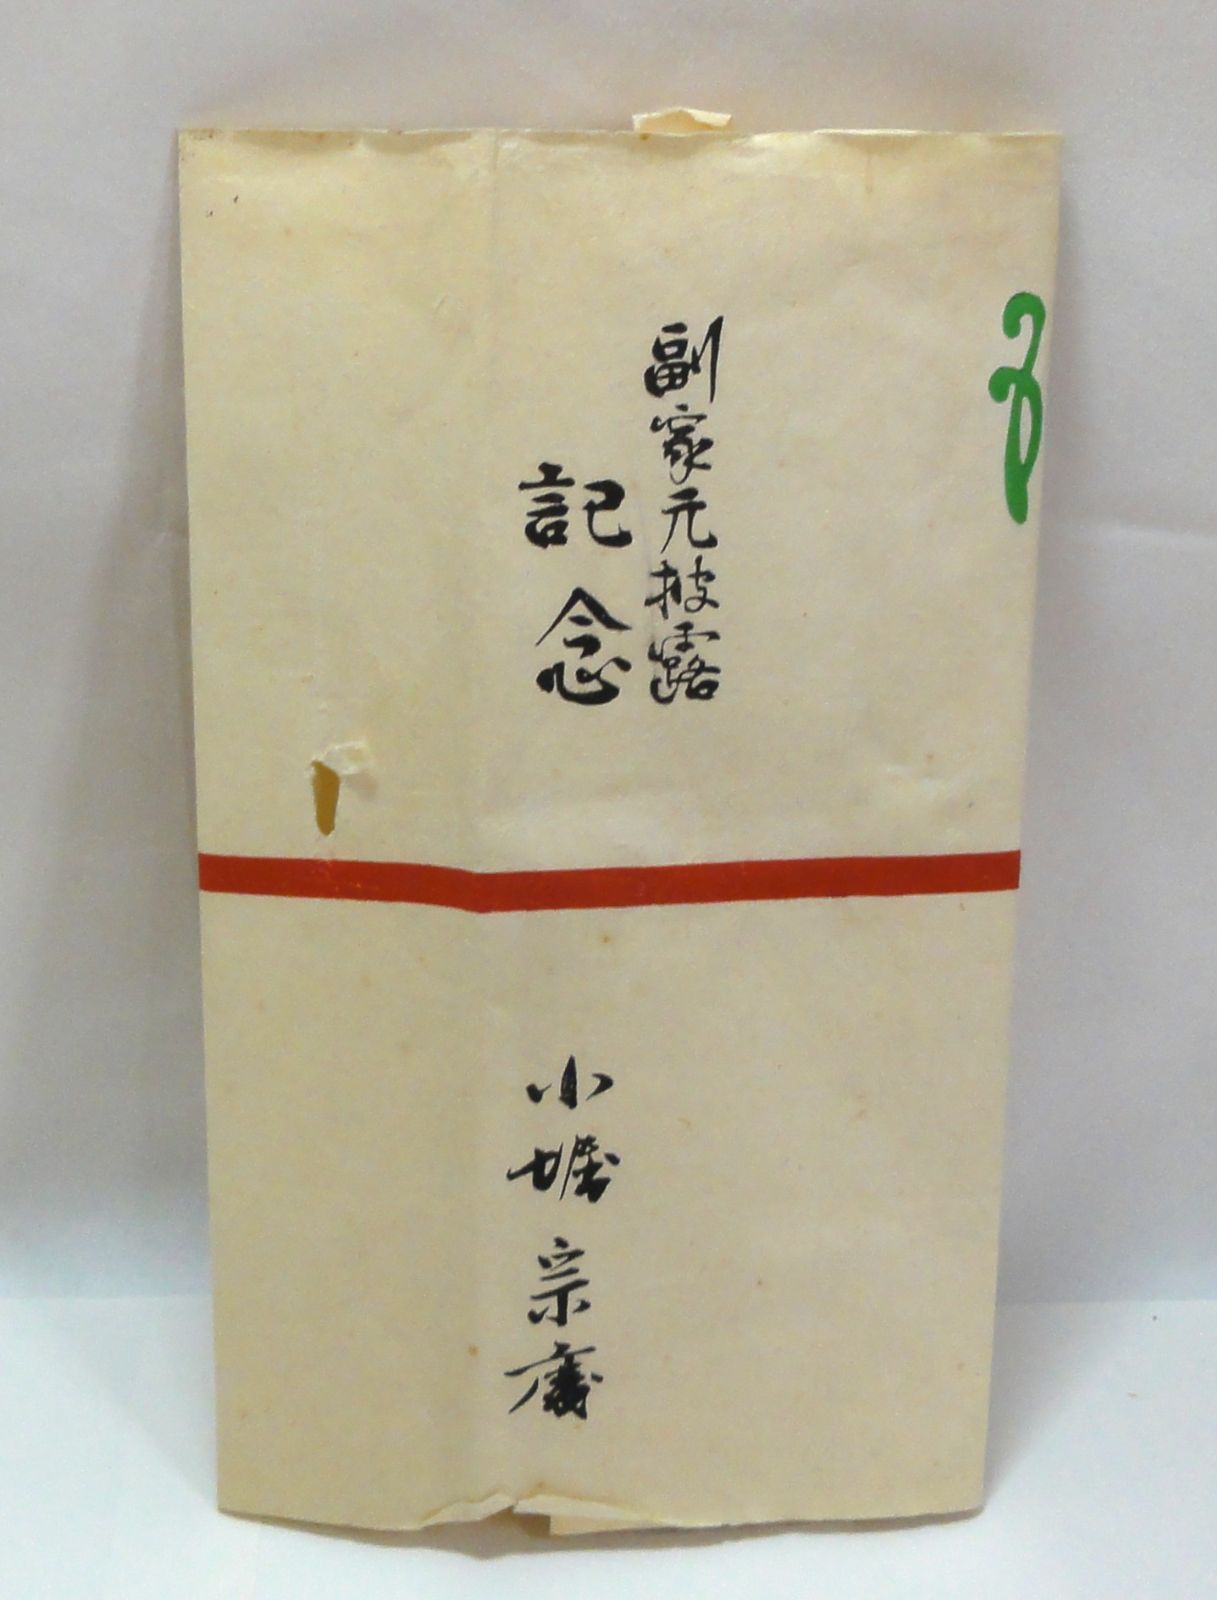 副家元披露
記念
小堀宗慶